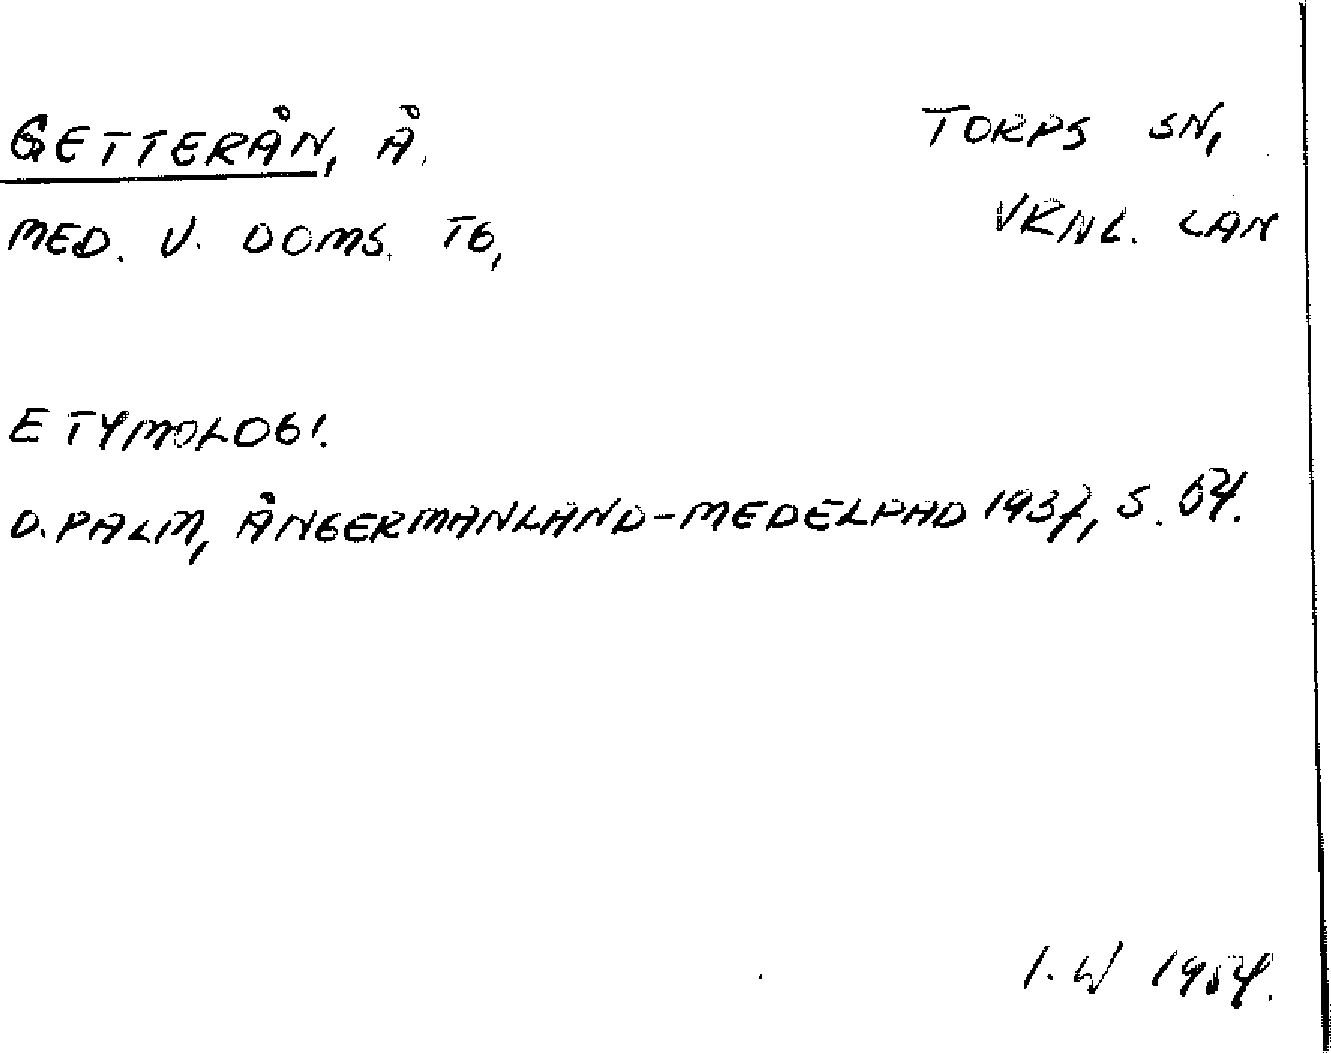 GETTERÅN, Å.
TORPS SN,
MED. V. DOMS. TG,
VRNL. LÄN
ETYMOLOGI.
D. PALM, ÅNGERMANLAND-MEDELPAD 1937, S. 64.
I. W 1954.